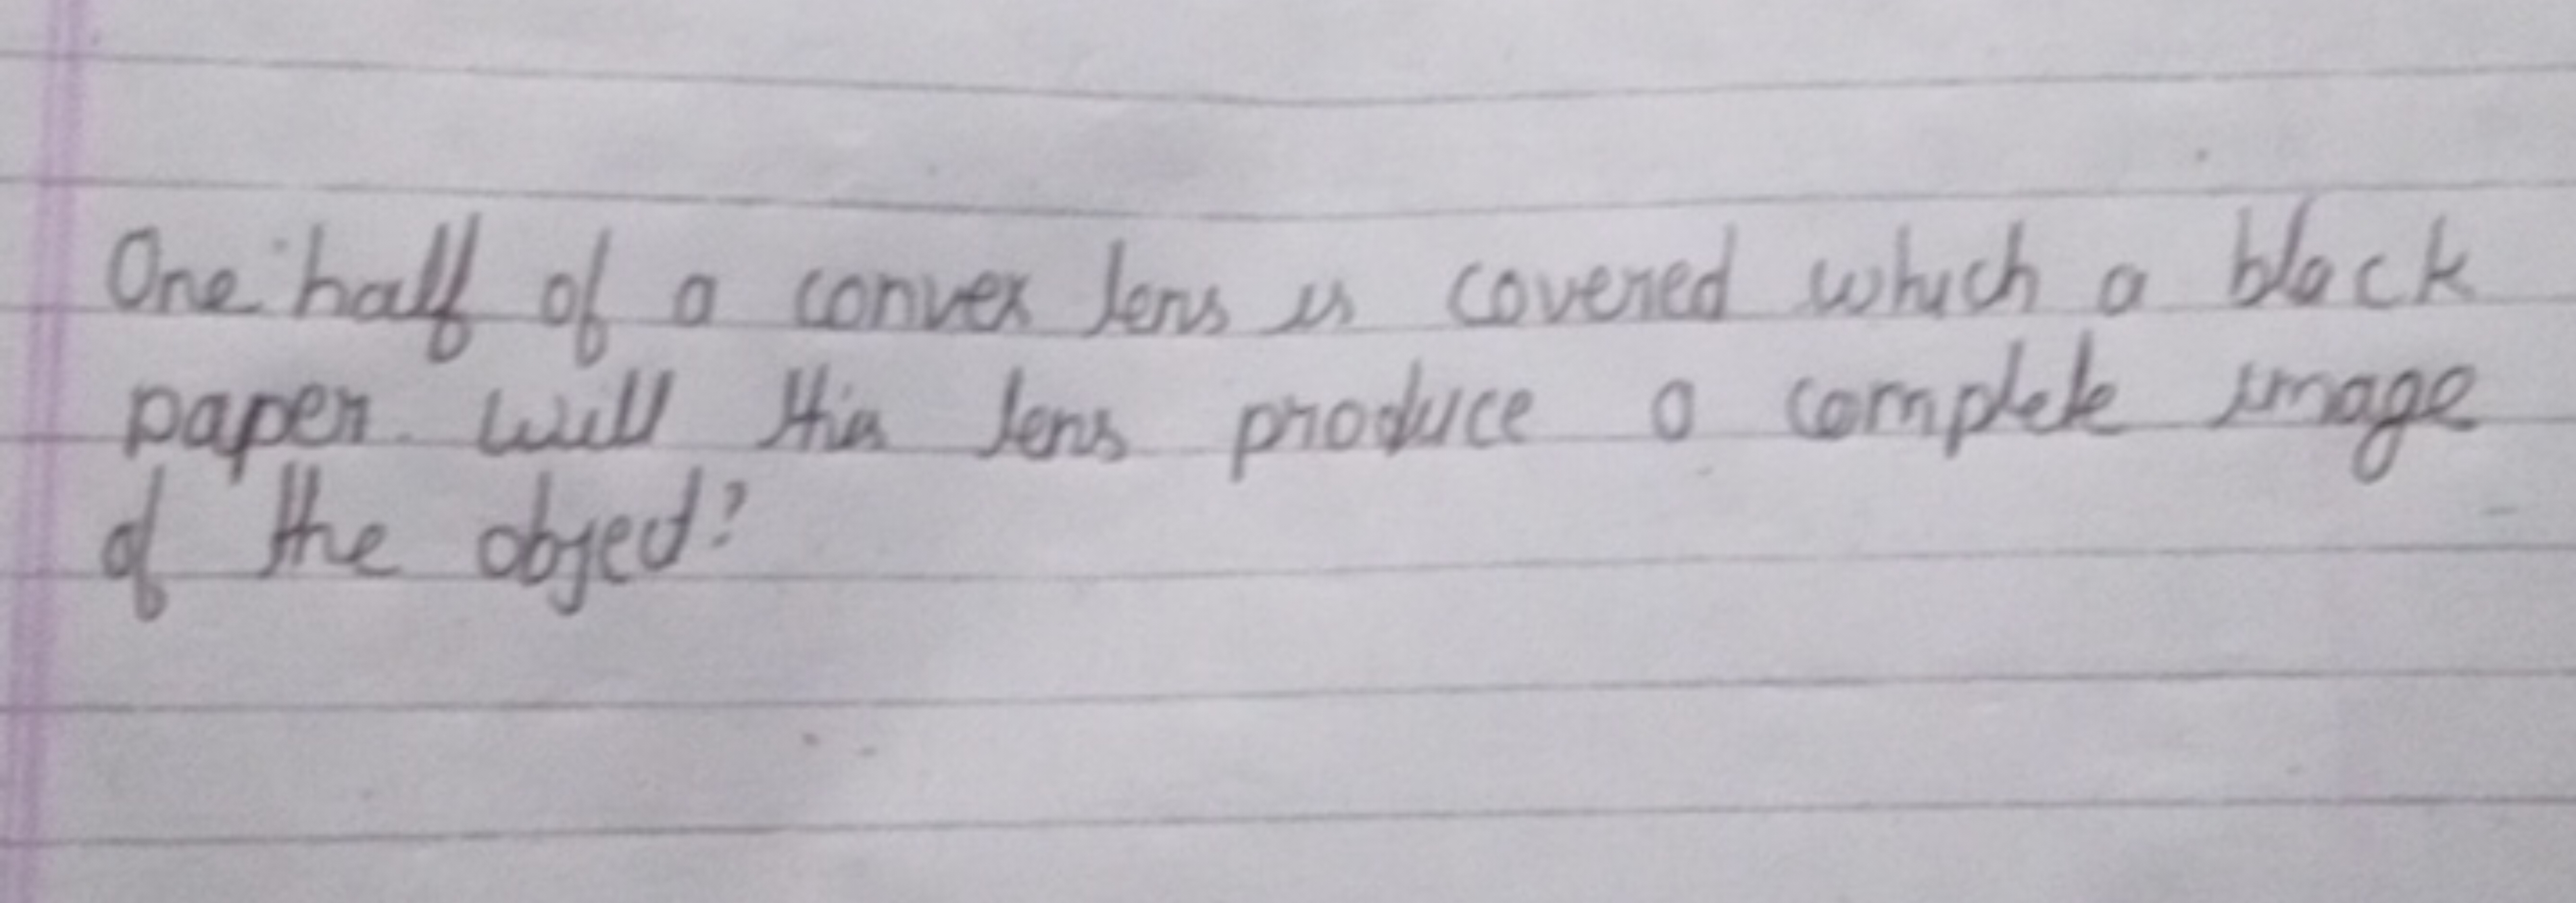 One half of a convex lens is covered which a black
paper. will this lens produce a complete image
of the object?